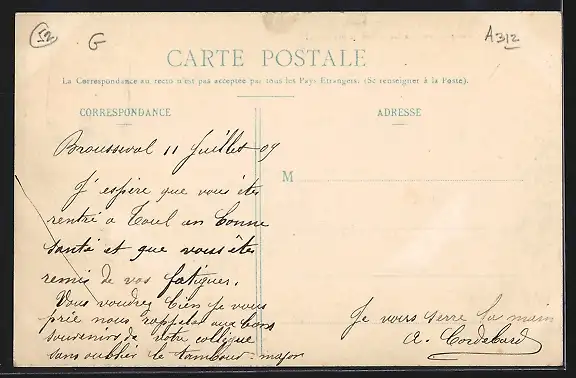 52
G
A312
CARTE POSTALE
La Correspondance au recto n'est pas acceptée par tous les Pays Étrangers. (Se renseigner à la Poste).
CORRESPONDANCE
ADRESSE
Brousseval 11 Juillet 09
J'espère que vous êtes
rentré a Toul en bonne
santé et que vous êtes
remis de vos fatigues.
Vous voudrez bien je vous
prie nous rappeler aux bons
souvenirs de votre collègue
sans oublier le tambour-major
M
Je vous serre la main
A. Cordebard